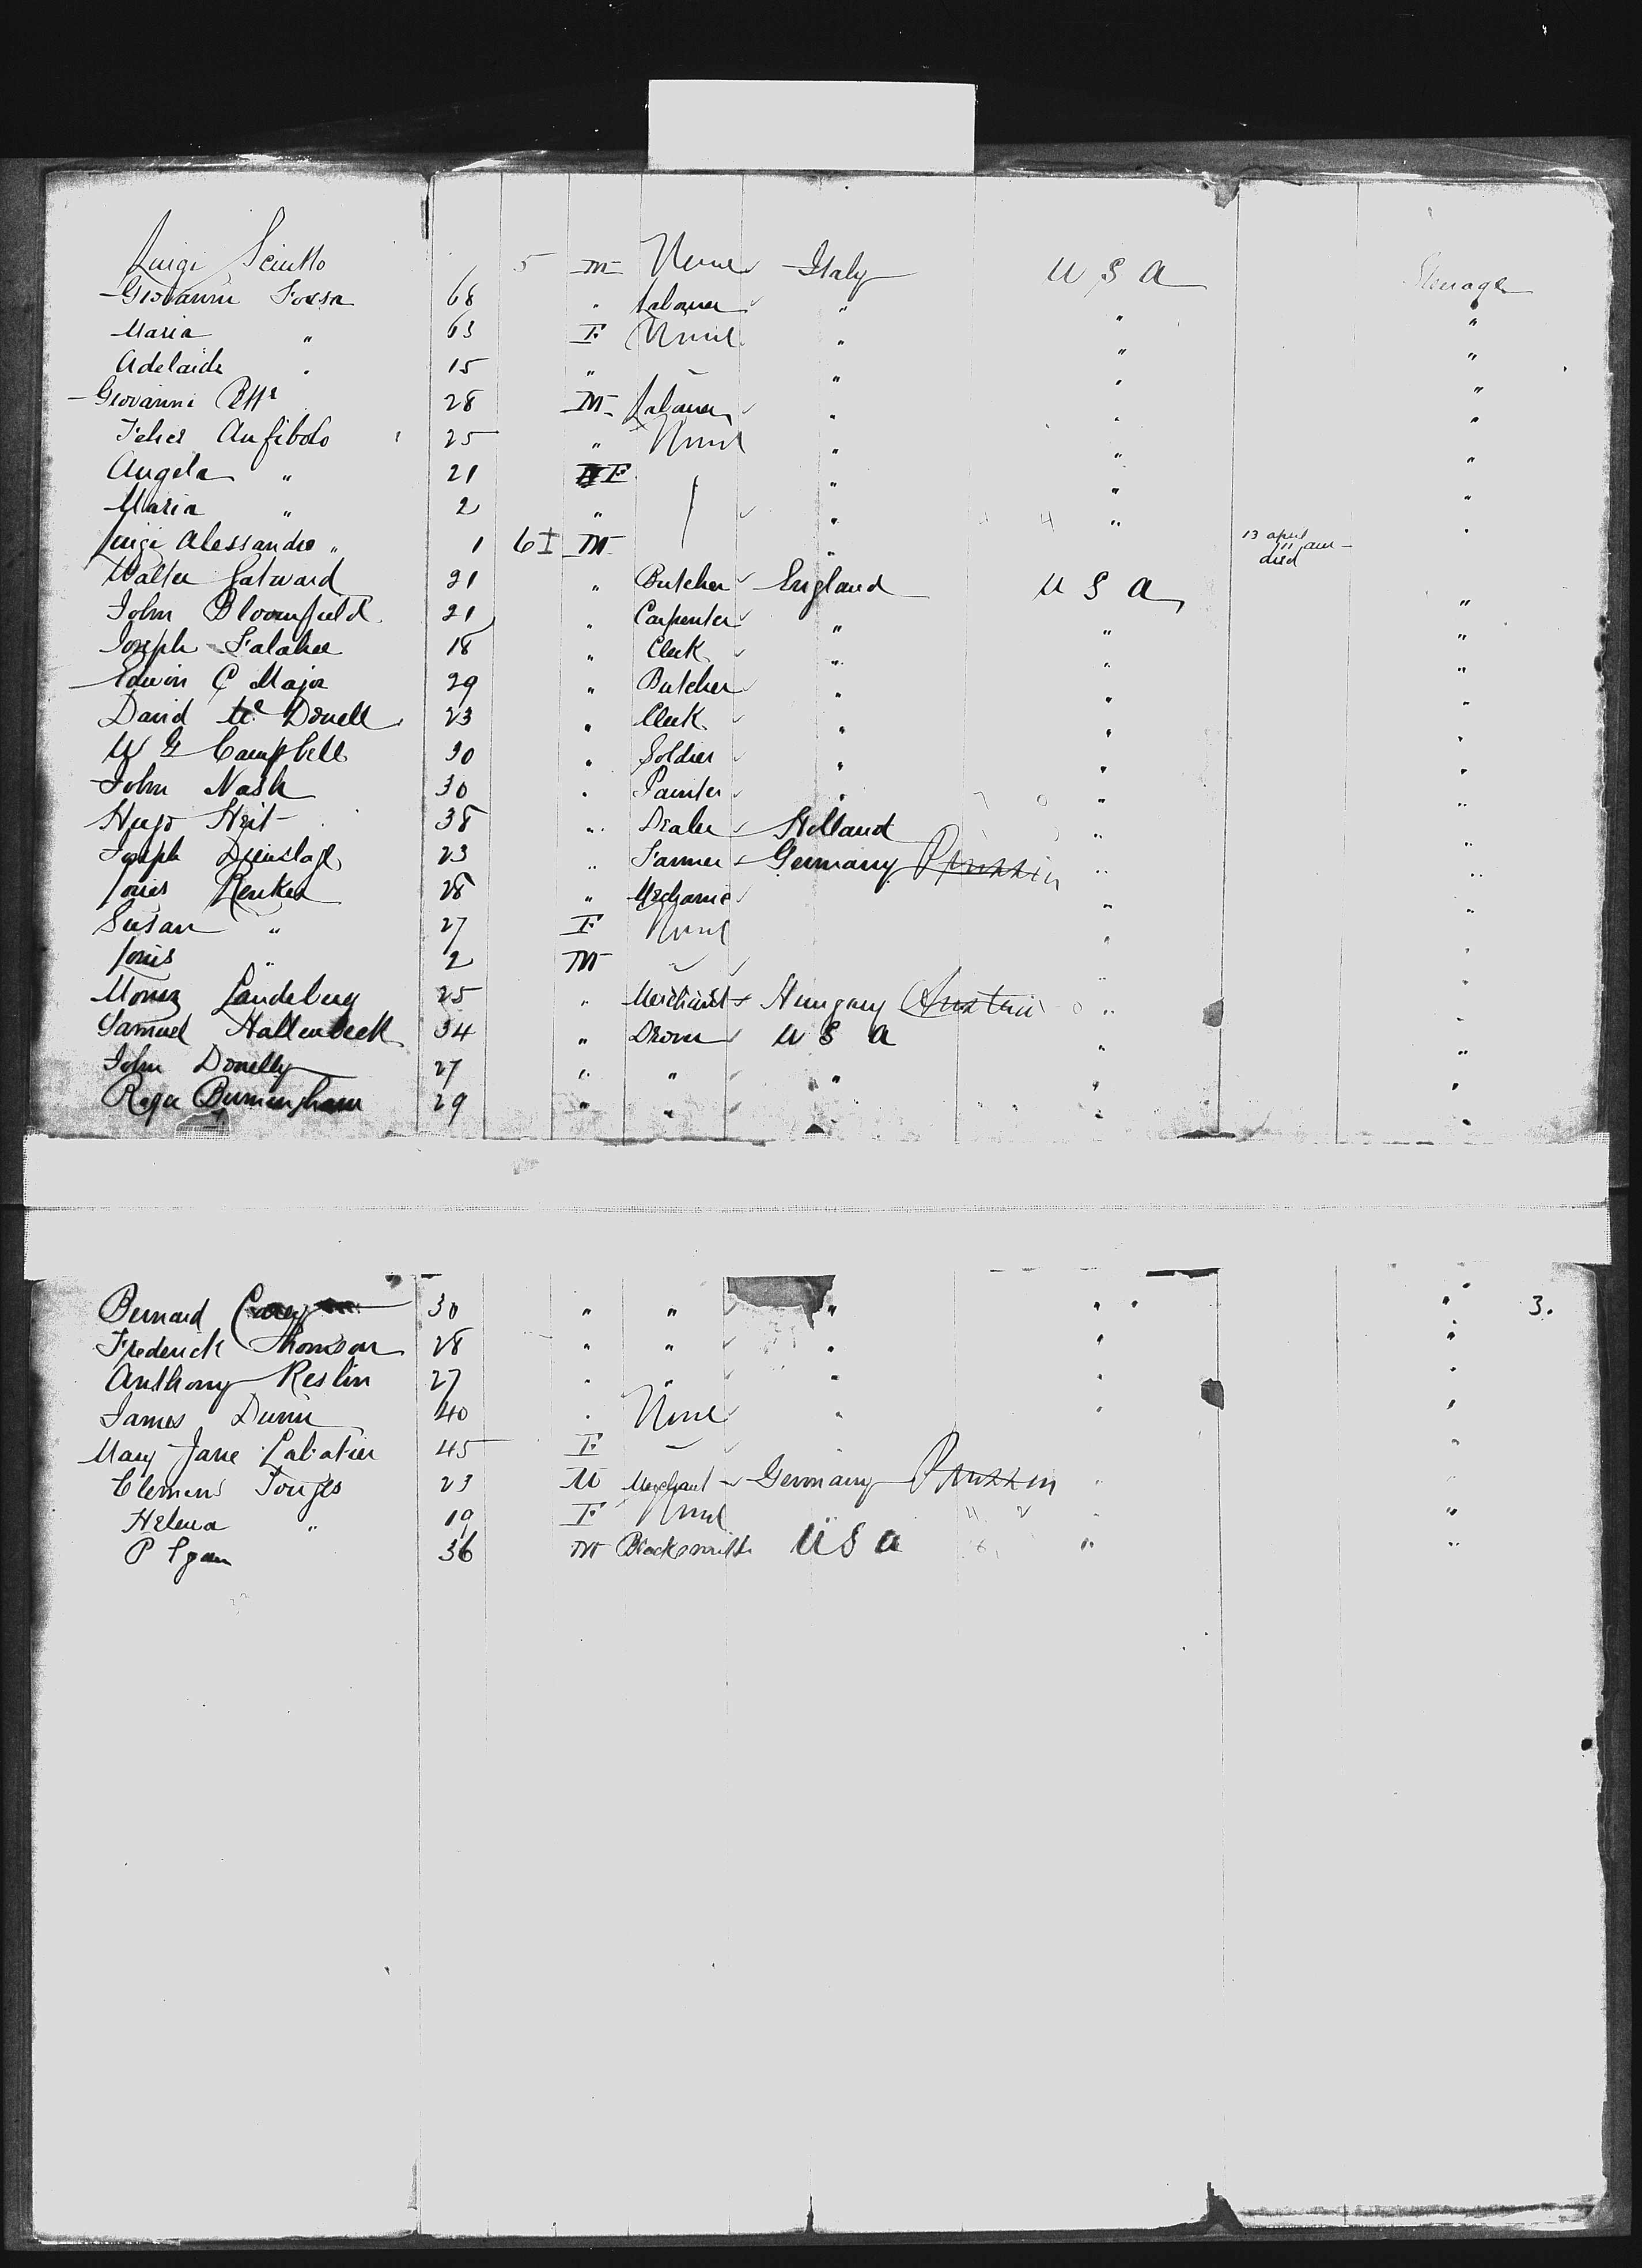 Luigi Sciutto 5 M None Italy U S A Steerage
Giovanni Fossa 68 " Labourer " " "
Maria " 63 F None " " "
Adelaide " 15 " " " " "
Giovanni 28 M Labourer " " "
Felice Anfiboto 25 " None " " "
Angela " 21 F " " "
Maria " 2 " " 4 " "
Luigi Alessandro " 1 6 M " 13 april 11 am died "
Walter Gatward 21 " Butcher England U S A "
John Bloomfield 21 " Carpenter " " "
Joseph Falahee 18 " Clerk " " "
Edwin C Major 29 " Butcher " " "
David Mc Donell 23 " Clerk " " "
W G Campbell 30 " Soldier " " "
John Nash 30 " Painter " 7 0 " "
Hugo Heit 38 " Dealer Holland " "
Joseph Dienstag 23 " Farmer Germany Prussia " "
Louis Renker 28 " Mechanic " "
Susan " 27 F None " "
Louis " 2 M " "
Moriz Landsberg 25 " Merchant Hungary Austria " "
Samuel Hallenbeck 34 " Drover U S A " "
John Donelly 27 " " " " "
Roger Birmingham 29 " " " " "
Bernard Carey 30 " " " " " 3.
Frederick Thomson 28 " " " " "
Anthony Reslin 27 " " " " "
James Dunn 40 " None " " "
Mary Jane Labatier 45 F "
Clemens Tonges 23 M Merchant Germany Prussia " "
Helena " 19 F None 4 2 " "
P Egan 36 M Blacksmith U S A 6 " "